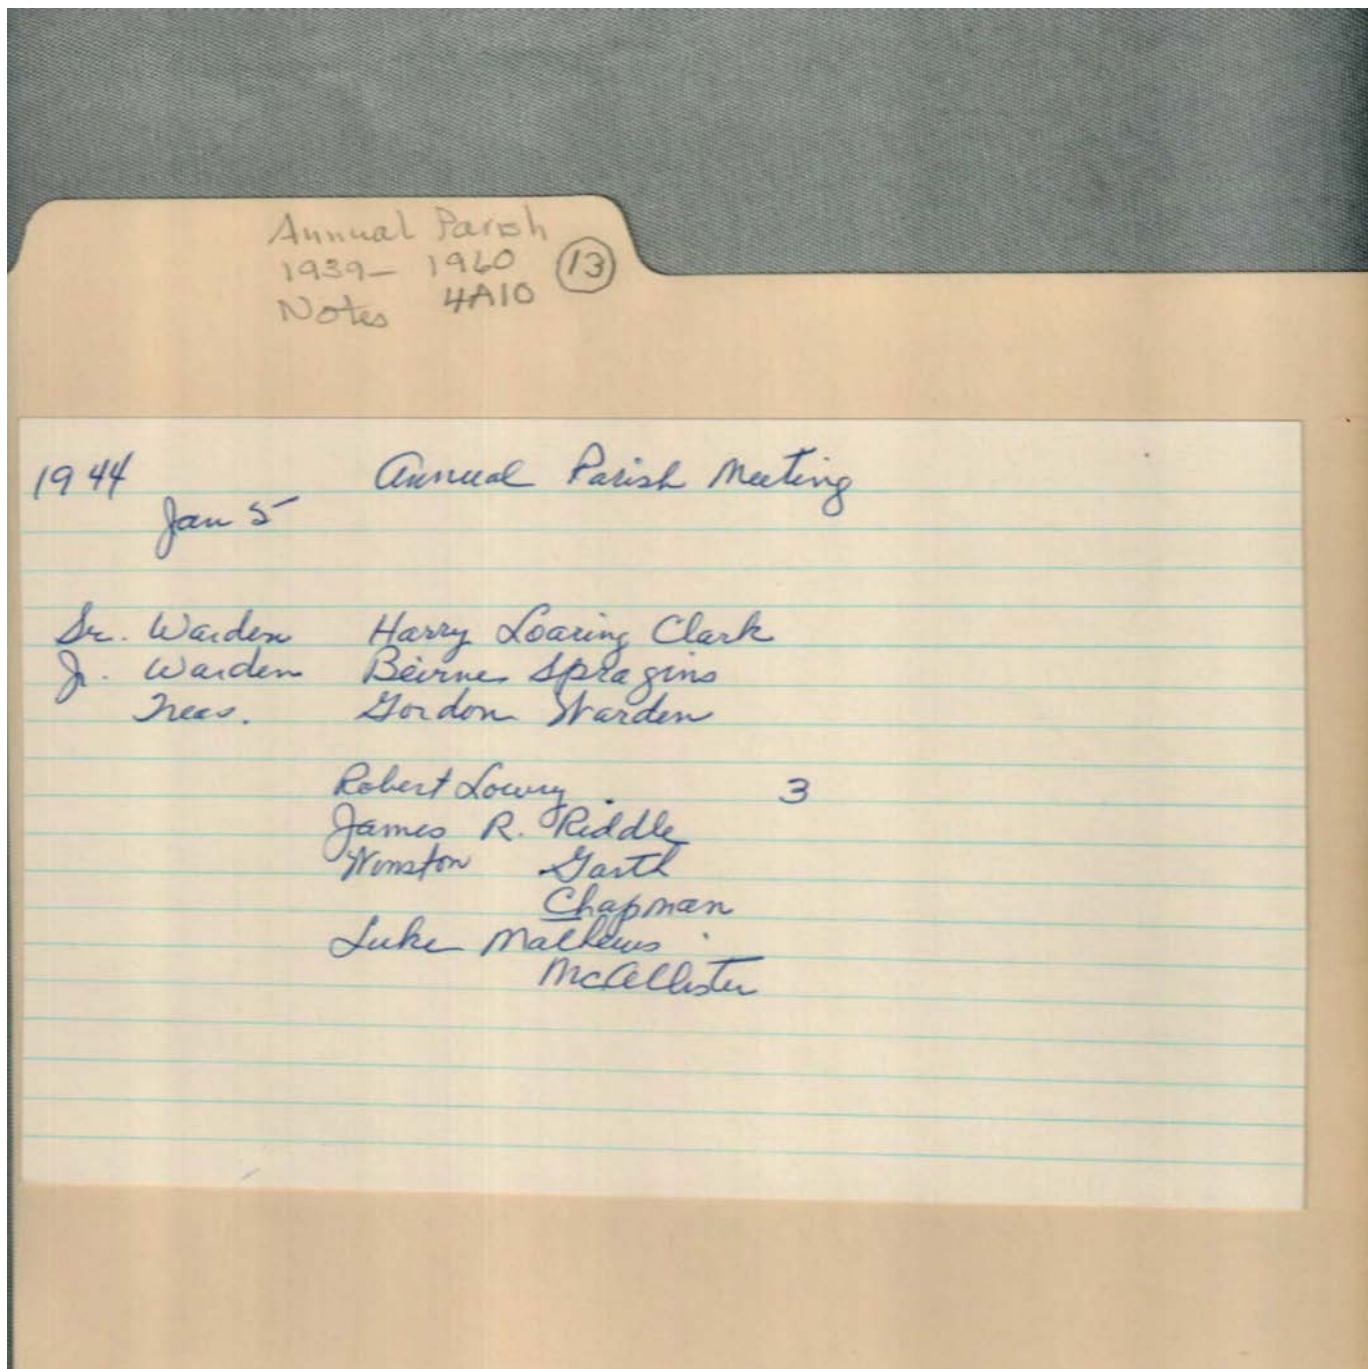 Annual Parish
1939- 1960 (13)
Notes 4A10
1944 Annual Parish Meeting
Jan 5
Sr. Warden Harry Loaring Clark
Jr. Warden Beirne Spragins
Treas. Gordon Warden
Robert Lowry. 3
James R. Riddle
Winston Garth
Chapman
Luke Mathews.
McAllister